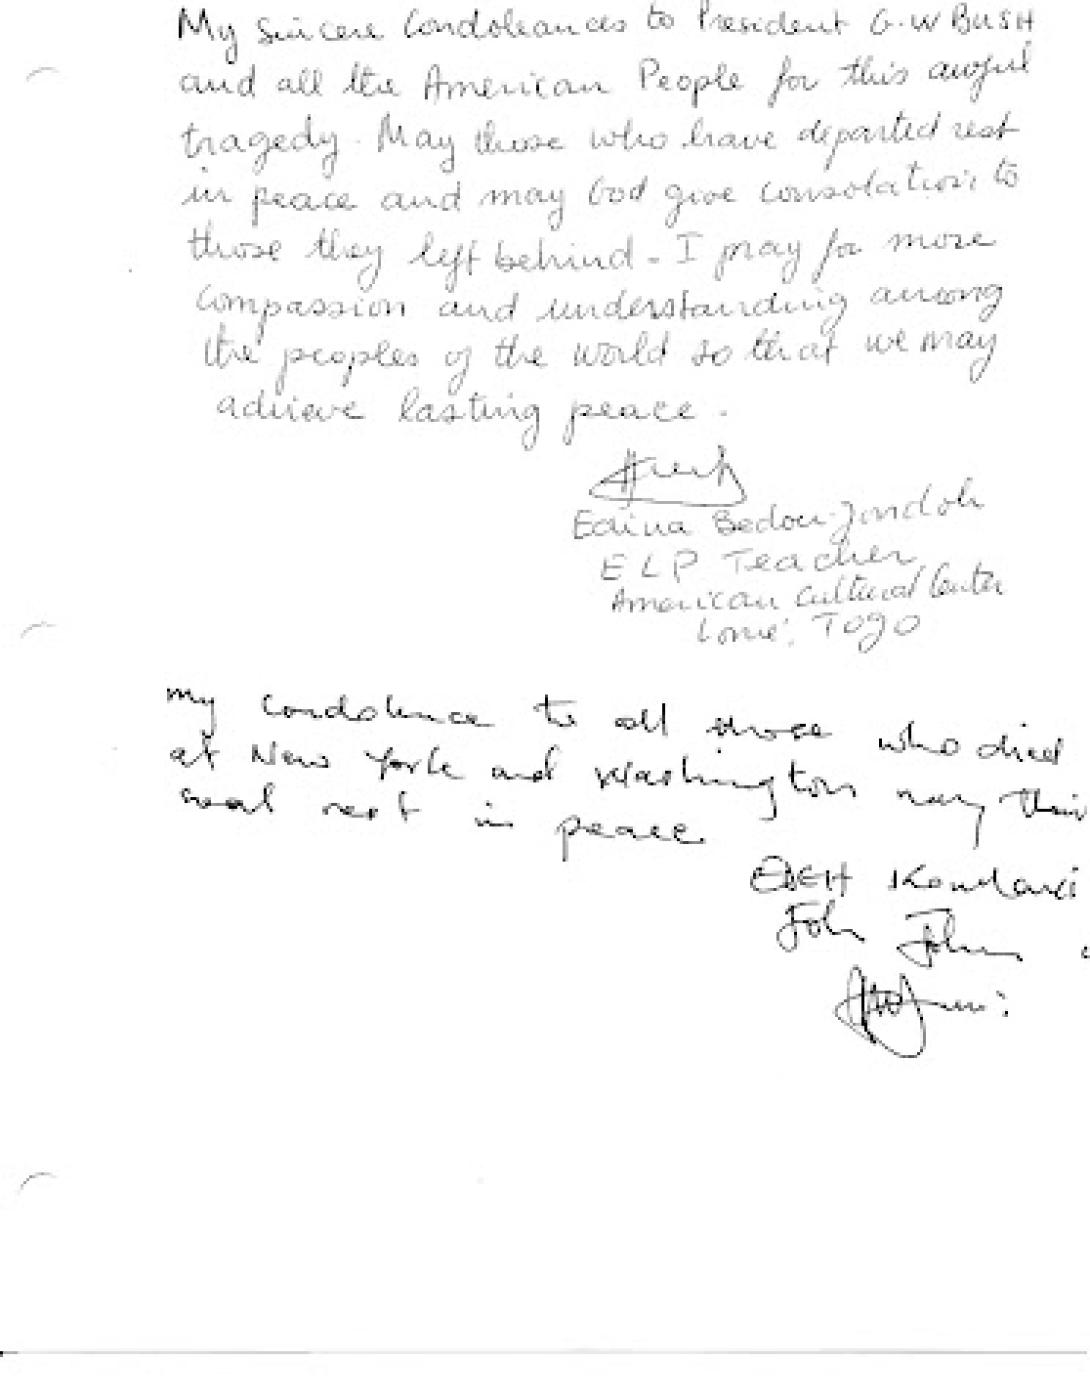 My sincere Condoleances to President G.W BUSH
and all the American People for this awful
tragedy. May those who have departed rest
in peace and may God give consolation to
those they left behind. I pray for more
compassion and understanding among
the peoples of the world so that we may
achieve lasting peace.
Edina Bedou-
ELP Teacher,
American Cultural Center
Lomé, Togo
my condolence to all those who died
at New York and Washington may their
rest in peace
EDEH
John